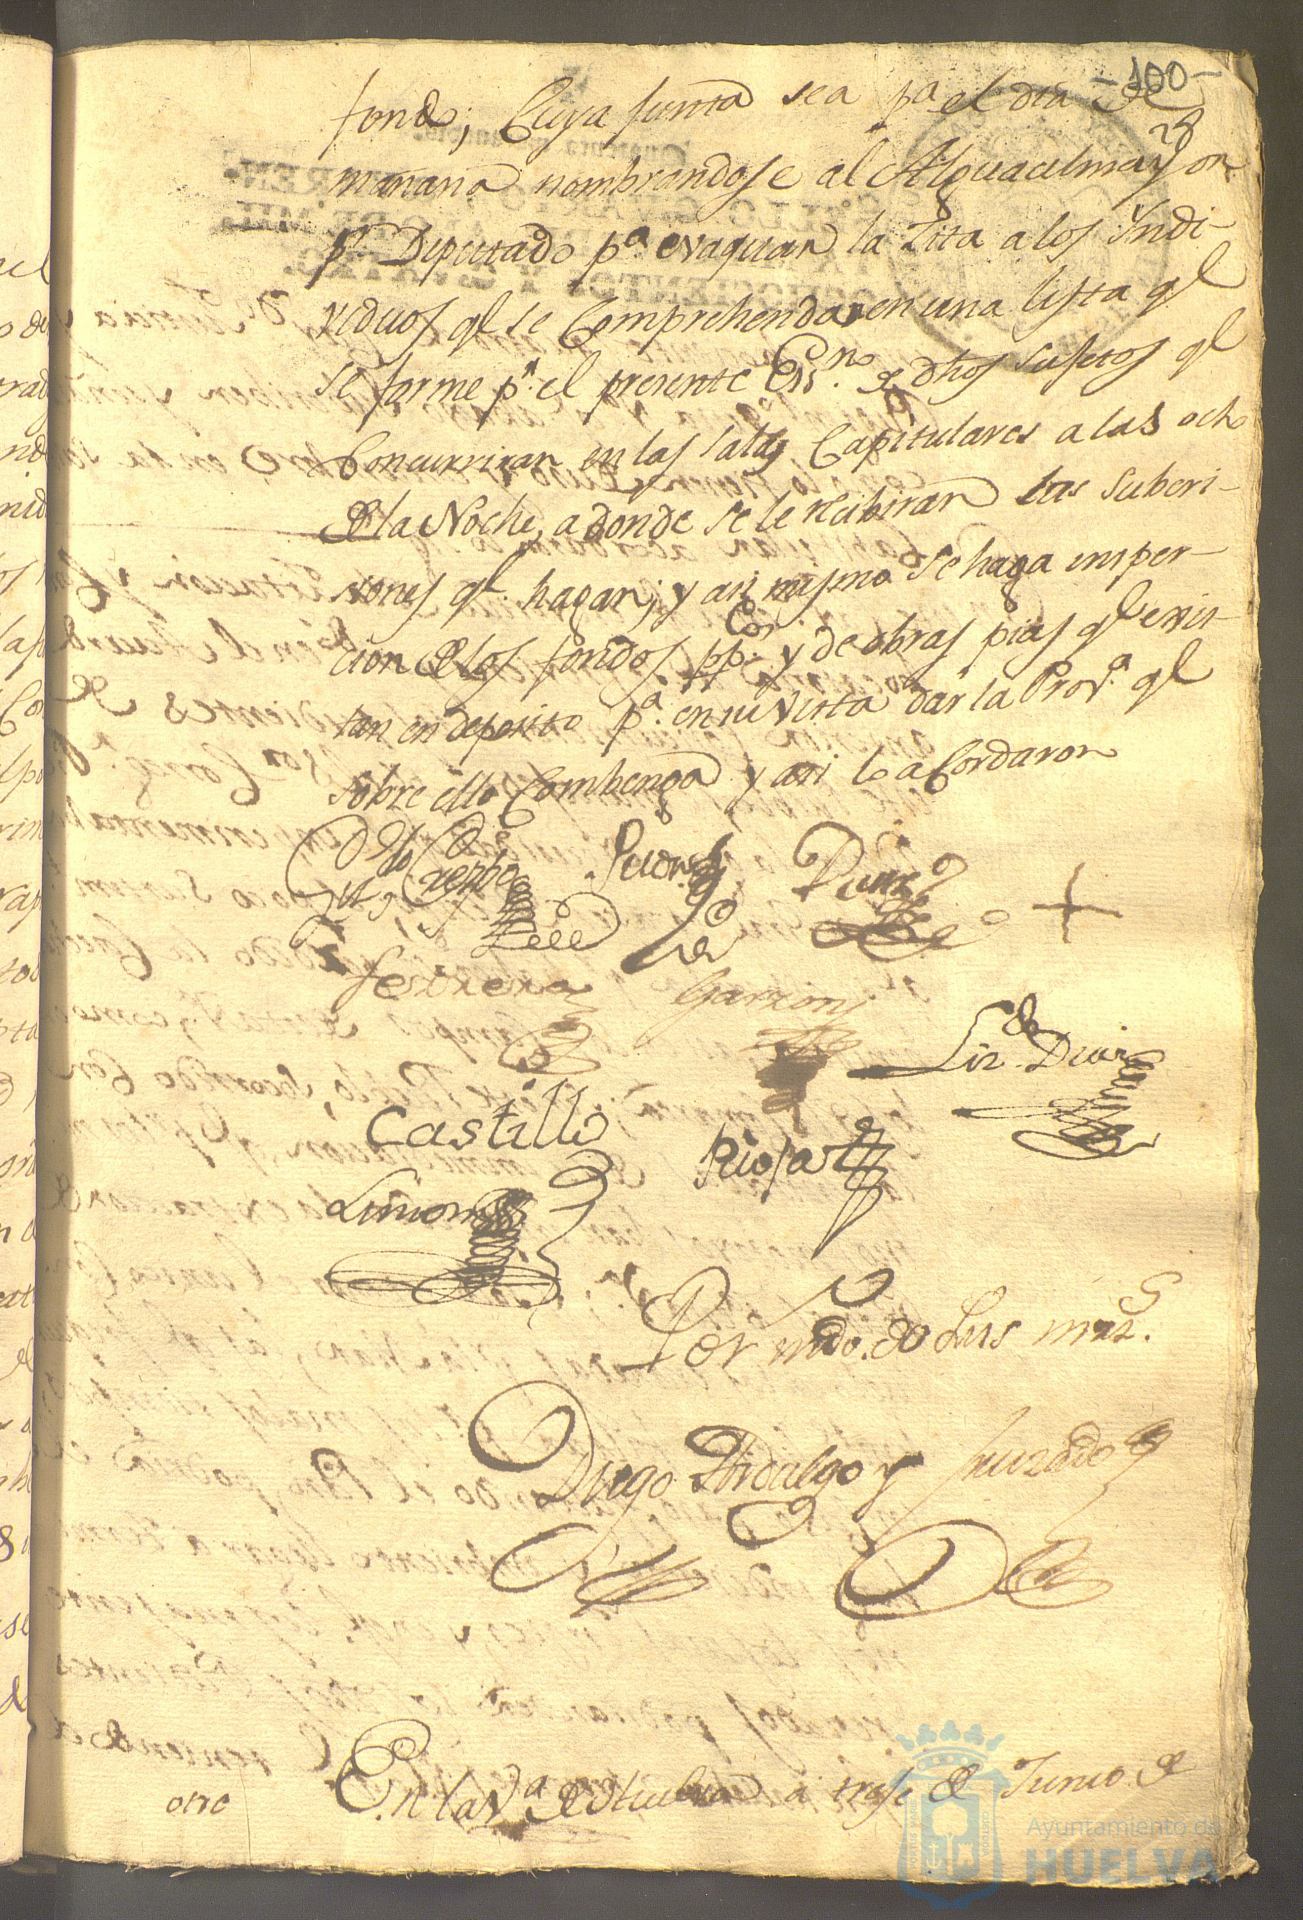 -100-
fondo; Cuya Junta sea pa el dia de
mañana nombrandose al Alguacil mayor
pr. Deputado pa. evaquar la Zita a los Yndi-
viduos ql se Comprehendan en una lista ql
se forme pr. el presente Essno. de dhos sujetos ql
Concurriran en las salas Capitulares a las ocho
de la Noche, a donde se le recibiran las suscri-
ciones ql. hagan; y asi mismo se haga insper-
cion de los fondos ppcos. y de obras pias ql exis-
tan en deposito pa. en su vista dar la Prova. ql
sobre ello Combenga y asi lo aCordaron
Crespo
Ferrera
Garzon
Castillo
Limon
Por mdo. de Luis mrzs.
Diego Hidalgo y Jurado
otro
En la Va. de Huelva a trese de Junio de
Ayuntamiento de
HUELVA